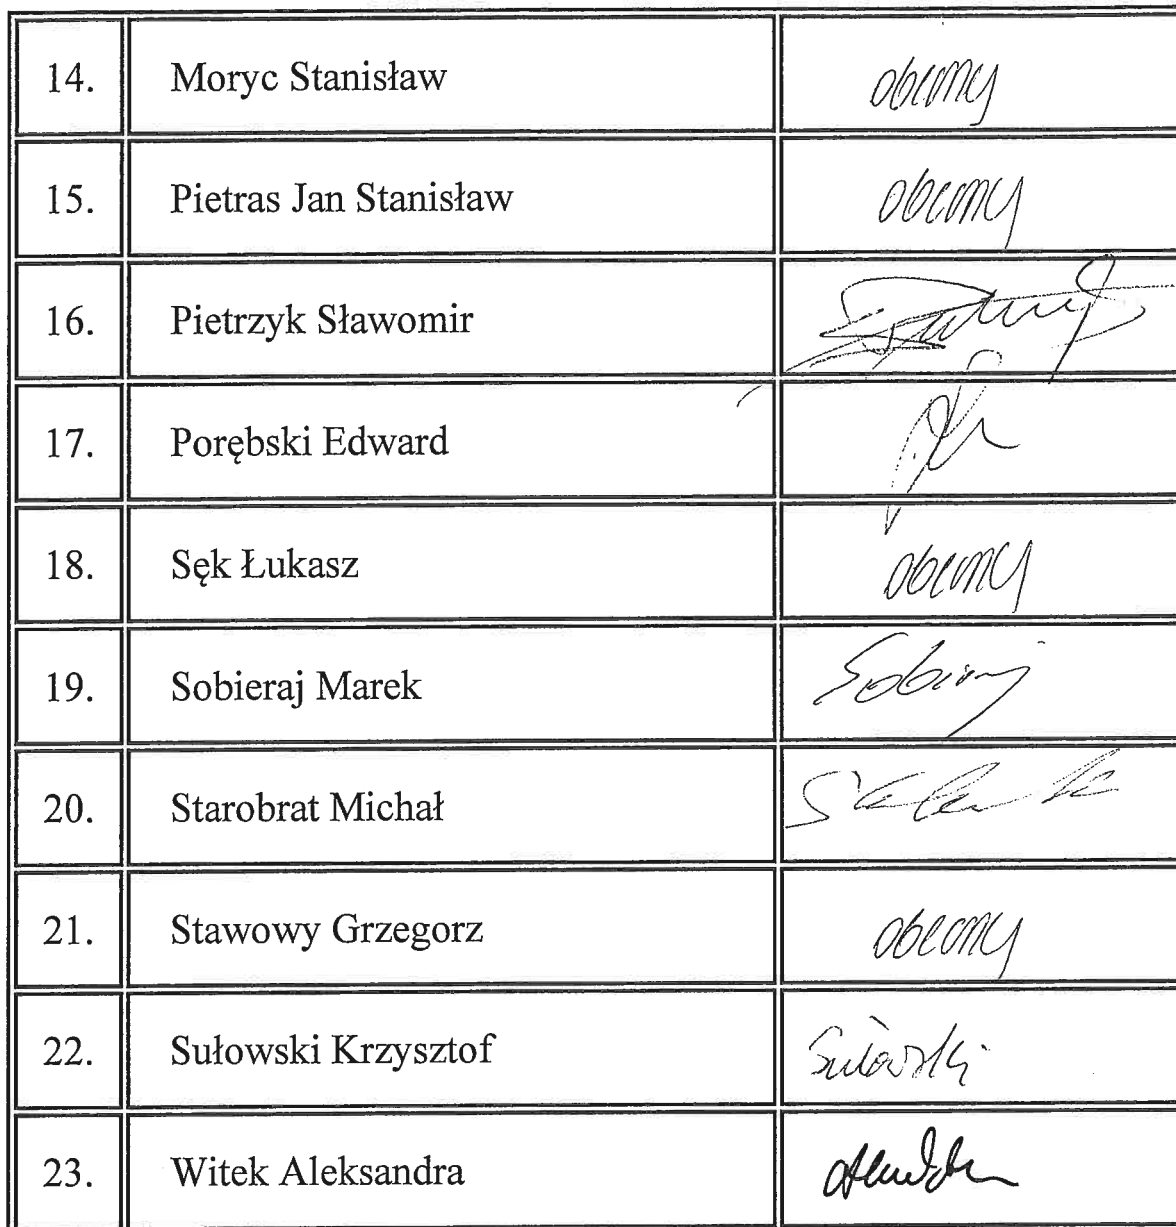 14. Moryc Stanisław obecny
15. Pietras Jan Stanisław obecny
16. Pietrzyk Sławomir
17. Porębski Edward
18. Sęk Łukasz obecny
19. Sobieraj Marek Sobieraj
20. Starobrat Michał
21. Stawowy Grzegorz obecny
22. Sułowski Krzysztof Sułowski
23. Witek Aleksandra